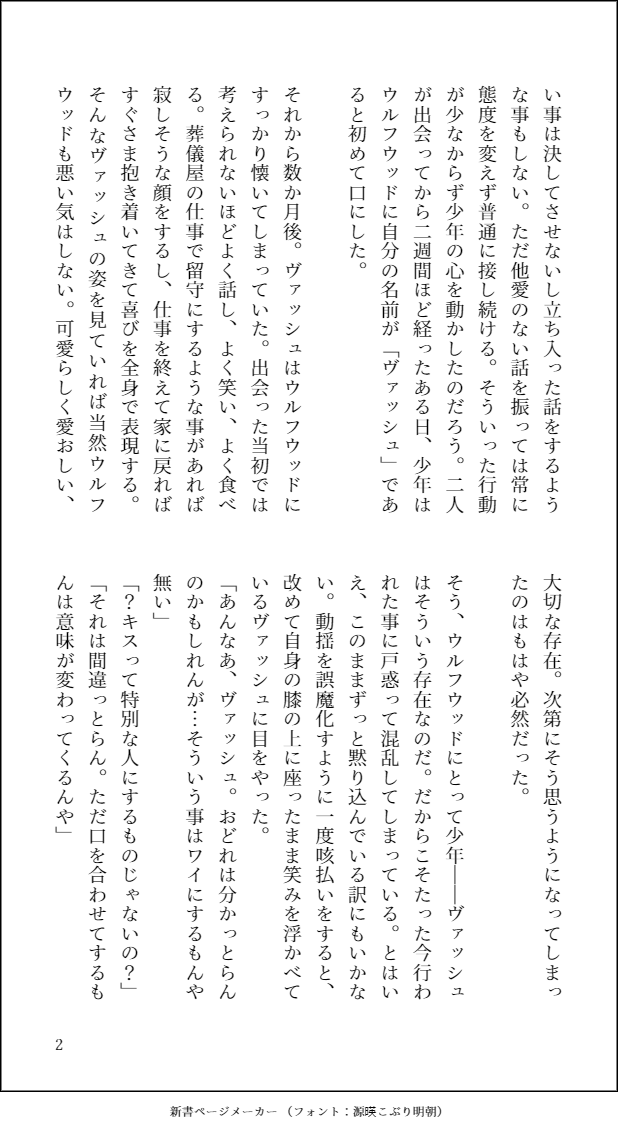 い事は決してさせないし立ち入った話をするよう
な事もしない。ただ他愛のない話を振っては常に
態度を変えず普通に接し続ける。そういった行動
が少なからず少年の心を動かしたのだろう。二人
が出会ってから二週間ほど経ったある日、少年は
ウルフウッドに自分の名前が「ヴァッシュ」であ
ると初めて口にした。
それから数か月後。ヴァッシュはウルフウッドに
すっかり懐いてしまっていた。出会った当初では
考えられないほどよく話し、よく笑い、よく食べ
る。葬儀屋の仕事で留守にするような事があれば
寂しそうな顔をするし、仕事を終えて家に戻れば
すぐさま抱き着いてきて喜びを全身で表現する。
そんなヴァッシュの姿を見ていれば当然ウルフ
ウッドも悪い気はしない。可愛らしく愛おしい、
大切な存在。次第にそう思うようになってしまっ
たのはもはや必然だった。
そう、ウルフウッドにとって少年――ヴァッシュ
はそういう存在なのだ。だからこそたった今行わ
れた事に戸惑って混乱してしまっている。とはい
え、このままずっと黙り込んでいる訳にもいかな
い。動揺を誤魔化すように一度咳払いをすると、
改めて自身の膝の上に座ったまま笑みを浮かべて
いるヴァッシュに目をやった。
「あんなあ、ヴァッシュ。おどれは分かっとらん
のかもしれんが…そういう事はワイにするもんや
無い」
「？キスって特別な人にするものじゃないの？」
「それは間違っとらん。ただ口を合わせてするも
んは意味が変わってくるんや」
2
新書ページメーカー（フォント：源暎こぶり明朝）